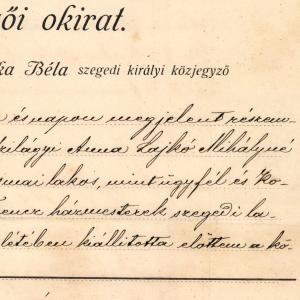 ői okirat.
ka Béla szegedi királyi közjegyző
és napon megjelent részem-
zilágyi Anna Lajkó Mihályné
mai lakos, mint ügyfél és Ko-
encz házmesterek szegedi la-
létében kiállította előttem a kö-